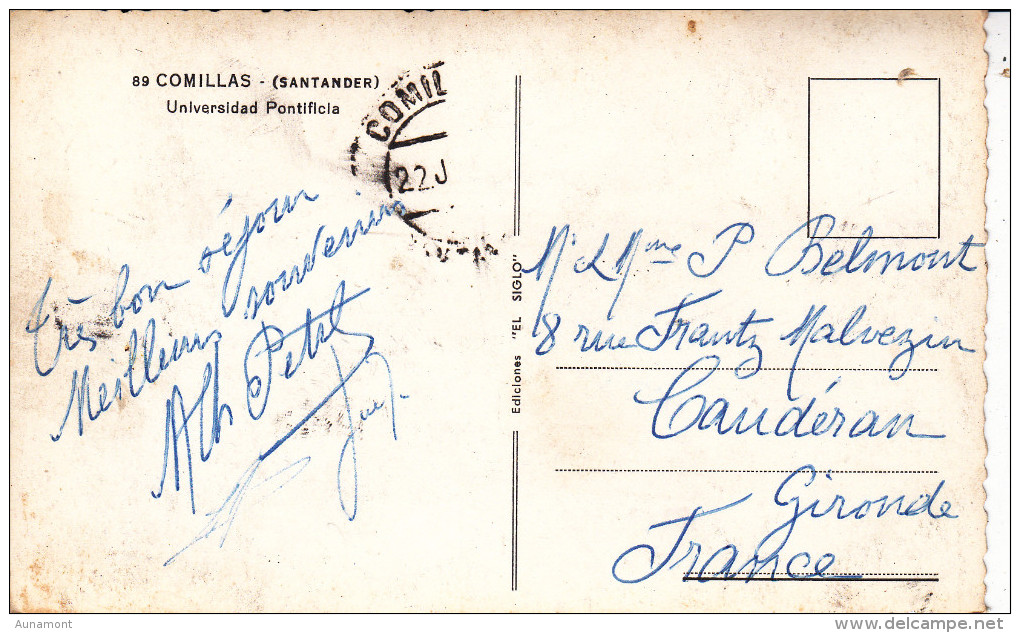 89 COMILLAS - (SANTANDER)
Universidad Pontificia
COMIL
22 J
Très bon séjour
Meilleurs souvenirs
Ediciones "EL SIGLO"
Mr & Mme P Belmont
8 rue Frantz Malvezin
Caudéran
Gironde
France
Aunamont
delcampe.net